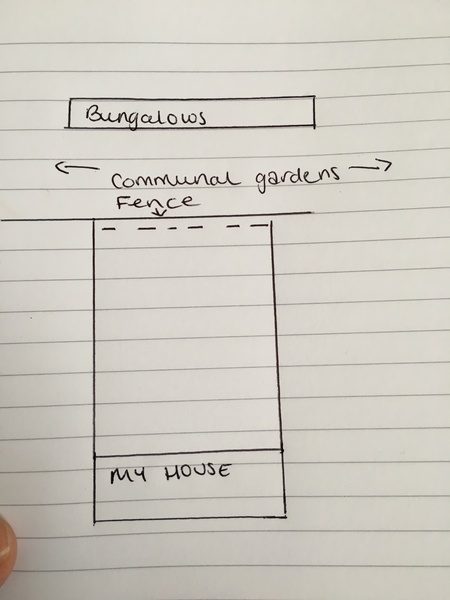 Bungalows
Communal gardens
Fence
MY HOUSE